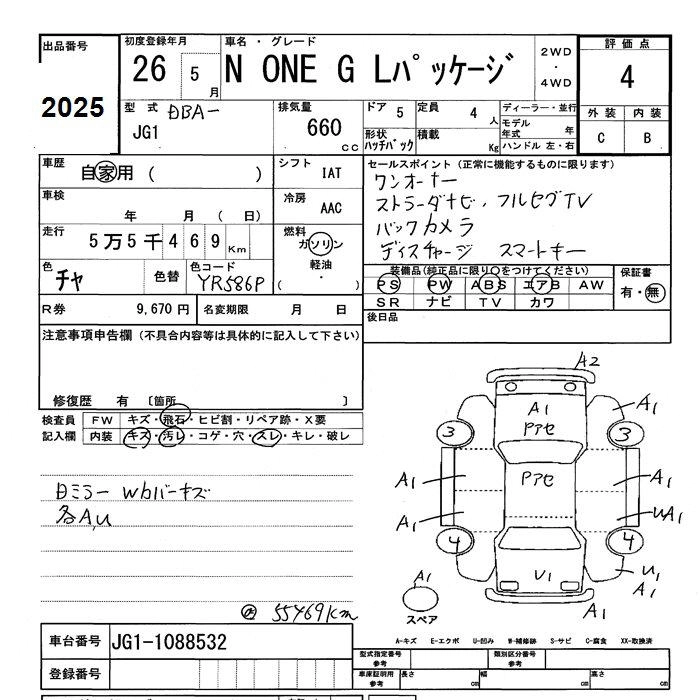 出品番号
2025
初度登録年月
26 5月
車名・グレード
N ONE G Lパッケージ
2WD
・
4WD
評価点
4
型式
DBA-
JG1
排気量
660 cc
ドア 5
定員 4人
形状
ハッチバック
積載 Kg
ディーラー・並行
モデル
年式 年
ハンドル 左・右
外装 内装
C B
車歴
自家用( )
シフト
IAT
車検
年 月 ( 日)
冷房
AAC
走行
5万5千469Km
燃料
ガソリン
軽油
・
( )
色
チャ
色替
色コード
YR586P
R券 9,670円
名変期限 月 日
セールスポイント(正常に機能するものに限ります)
ワンオーナー
ストラーダナビ、フルセグTV
バックカメラ
ディスチャージ スマートキー
装備品(純正品に限り○をつけてください)
PS PW ABS エアB AW
SR ナビ TV カワ
保証書
有・無
後日品
注意事項申告欄(不具合内容等は具体的に記入して下さい)
修復歴 有 〔箇所 〕
検査員
記入欄
FW キズ・飛石・ヒビ割・リペア跡・X要
内装 キズ・汚レ・コゲ・穴・スレ・キレ・破レ
日ミラー Wbバーキズ
各A,U
55469Km
A2
A1
Pアセ
A1
3
3
Pアセ
A1
A1
A1
UA1
4
4
U1
U1
A1
A1
A1
スペア
A-キズ E-エクボ U-凹み W-補修跡 S-サビ C-腐食 XX-取換済
車台番号 JG1-1088532
登録番号
型式指定番号
参考
類別区分番号
参考
車庫証明用
参考
長さ cm
幅 cm
高さ cm